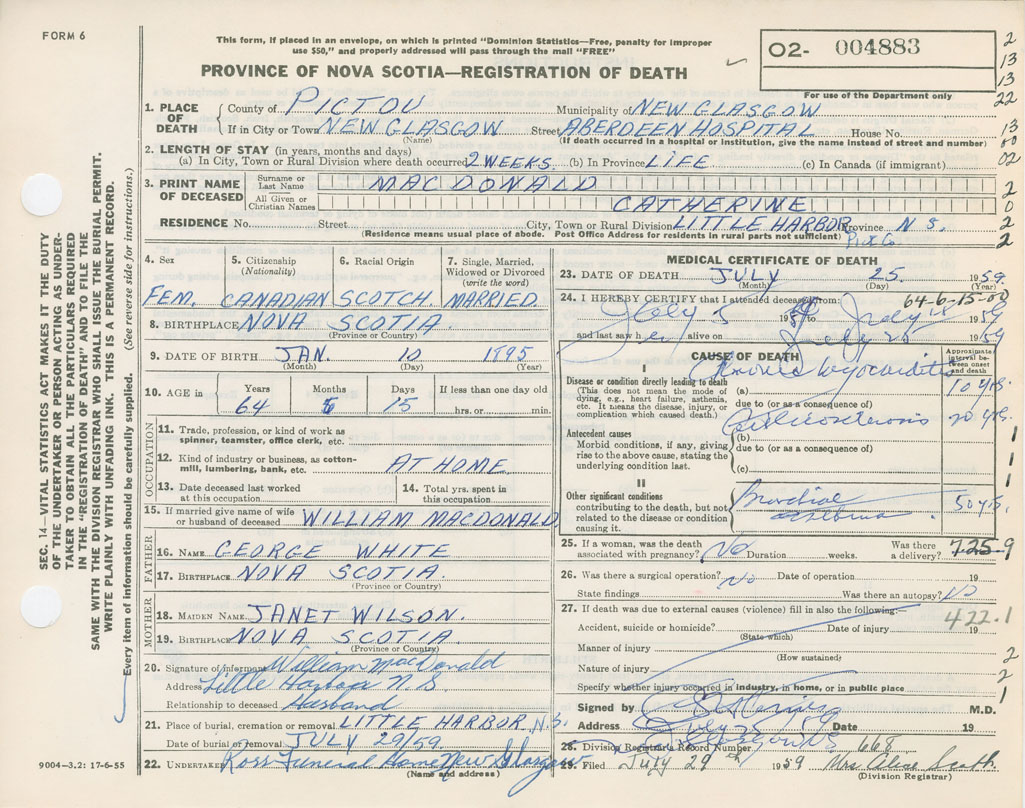 FORM 6
This form, if placed in an envelope, on which is printed "Dominion Statistics—Free, penalty for improper
use $50," and properly addressed will pass through the mail "FREE"
PROVINCE OF NOVA SCOTIA—REGISTRATION OF DEATH
O2- 004883
For use of the Department only
2
13
13
22
13
00
02
2
0
2
2
SEC. 14—VITAL STATISTICS ACT MAKES IT THE DUTY
OF THE UNDERTAKER OR PERSON ACTING AS UNDER-
TAKER TO OBTAIN ALL THE PARTICULARS REQUIRED
IN THE "REGISTRATION OF DEATH" AND TO FILE THE
SAME WITH THE DIVISION REGISTRAR WHO SHALL ISSUE THE BURIAL PERMIT.
WRITE PLAINLY WITH UNFADING INK. THIS IS A PERMANENT RECORD.
Every item of information should be carefully supplied. (See reverse side for instructions.)
1. PLACE OF DEATH County of PICTOU Municipality of NEW GLASGOW
If in City or Town NEW GLASGOW Street ABERDEEN HOSPITAL House No.
(Name) (If death occurred in a hospital or institution, give the name instead of street and number)
2. LENGTH OF STAY (in years, months and days)
(a) In City, Town or Rural Division where death occurred 2 WEEKS (b) In Province LIFE (c) In Canada (if immigrant)
3. PRINT NAME OF DECEASED Surname or Last Name MACDONALD
All Given or Christian Names CATHERINE
RESIDENCE No. Street City, Town or Rural Division LITTLE HARBOR Province N S.
(Residence means usual place of abode. Post Office Address for residents in rural parts not sufficient) Pict Co
4. Sex 5. Citizenship (Nationality) 6. Racial Origin 7. Single, Married, Widowed or Divorced (write the word)
FEM. CANADIAN SCOTCH. MARRIED
8. BIRTHPLACE NOVA SCOTIA
(Province or Country)
9. DATE OF BIRTH JAN. 10 1895
(Month) (Day) (Year)
10. AGE in Years Months Days If less than one day old
64 6 15 hrs. or min.
OCCUPATION
11. Trade, profession, or kind of work as
spinner, teamster, office clerk, etc.
12. Kind of industry or business, as cotton-
mill, lumbering, bank, etc. AT HOME
13. Date deceased last worked at this occupation 14. Total yrs. spent in this occupation
15. If married give name of wife
or husband of deceased WILLIAM MACDONALD
FATHER
16. NAME GEORGE WHITE
17. BIRTHPLACE NOVA SCOTIA.
(Province or Country)
MOTHER
18. MAIDEN NAME JANET WILSON.
19. BIRTHPLACE NOVA SCOTIA
(Province or Country)
20. Signature of informant William MacDonald
Address Little Harbor N.S.
Relationship to deceased Husband
21. Place of burial, cremation or removal LITTLE HARBOR N.S.
Date of burial or removal JULY 29/59.
22. UNDERTAKER Ross Funeral Home New Glasgow
(Name and address)
9004—3.2: 17-6-55
MEDICAL CERTIFICATE OF DEATH
23. DATE OF DEATH JULY 25. 1959.
(Month) (Day) (Year)
24. I HEREBY CERTIFY that I attended deceased from: 64-6-15-00
July 5 1959 to July 1959
and last saw her alive on July 25 1959
CAUSE OF DEATH
Approximate interval between onset and death
I
Disease or condition directly leading to death
(This does not mean the mode of
dying, e.g., heart failure, asthenia,
etc. It means the disease, injury, or
complication which caused death.)
(a) Chronic Myocarditis 10 yrs.
due to (or as a consequence of)
Antecedent causes
Morbid conditions, if any, giving
rise to the above cause, stating the
underlying condition last.
(b) 20 yrs.
due to (or as a consequence of)
(c)
1
1
1
1
II
Other significant conditions
contributing to the death, but not
related to the disease or condition
causing it.
Bronchial asthma. 50 yrs.
25. If a woman, was the death
associated with pregnancy? No Duration weeks. Was there a delivery?
7-25-9
26. Was there a surgical operation? no Date of operation 19
State findings Was there an autopsy? no
27. If death was due to external causes (violence) fill in also the following:
422.1
Accident, suicide or homicide? Date of injury 19
(State which)
Manner of injury
(How sustained)
2
Nature of injury
2
Specify whether injury occurred in industry, in home, or in public place
1
Signed by M.D.
Address July 25 59 Date 19
28. Division Registrar's Record Number 668
29. Filed July 29th 1959 Mrs Alice Scott
(Division Registrar)